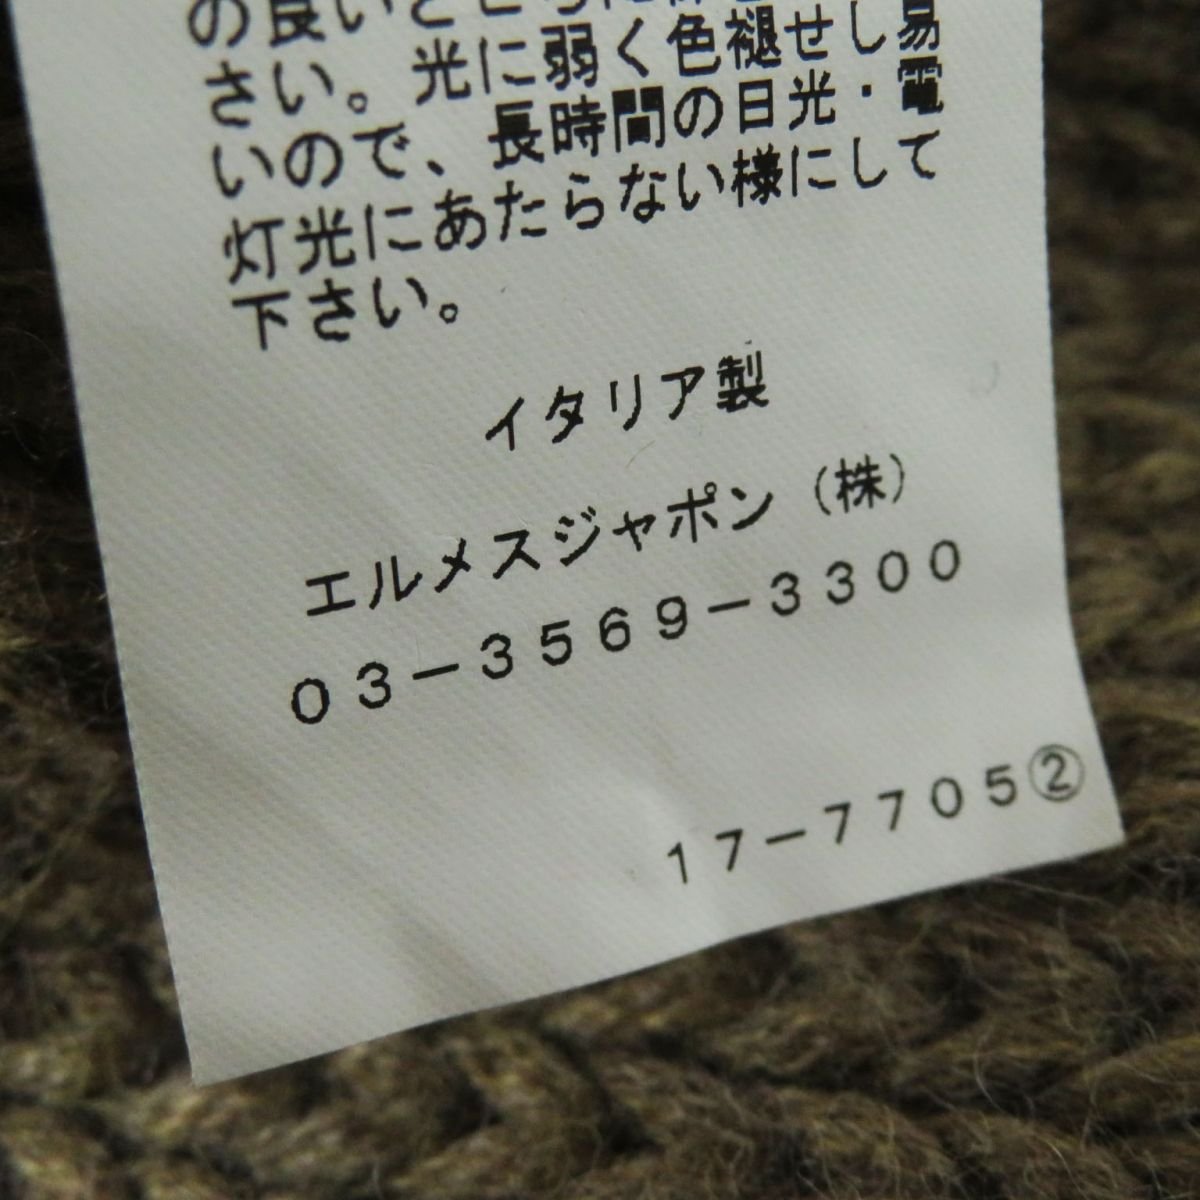 の良いと
さい。光に弱く色褪せし易
いので、長時間の日光・電
灯光にあたらない様にして
下さい。
イタリア製
エルメスジャポン（株）
03-3569-3300
17-7705②